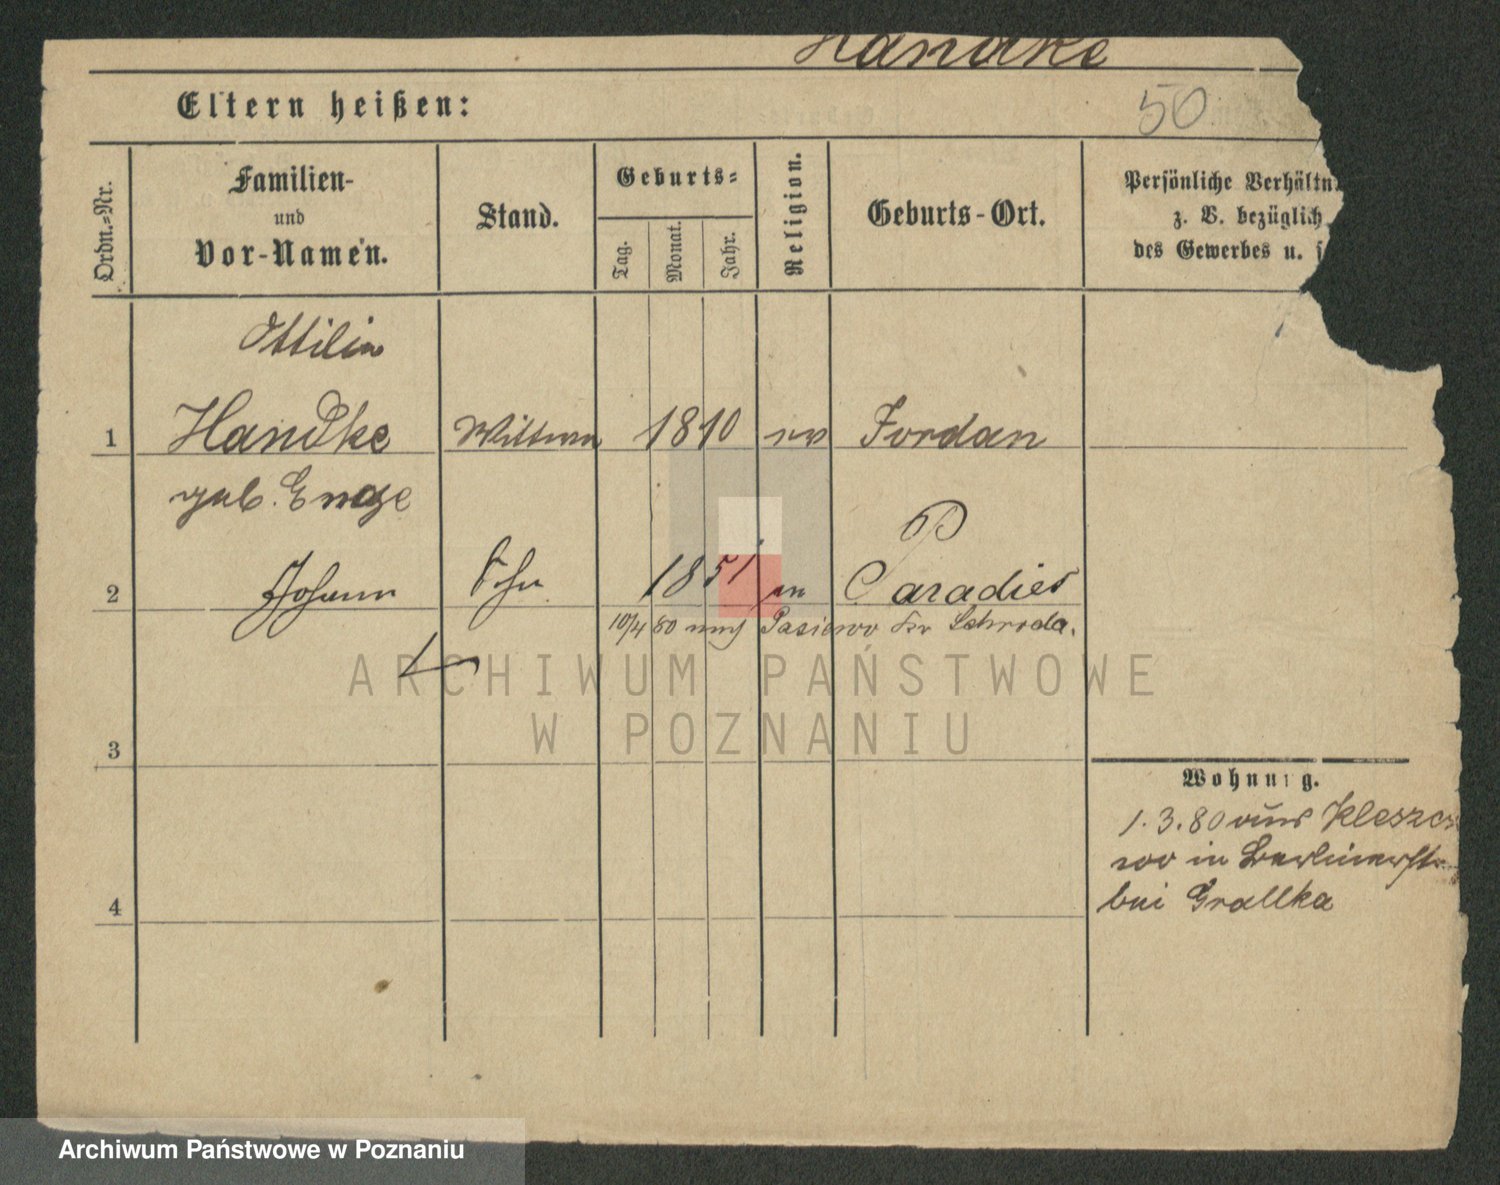 Handke
Eltern heißen:
50
Ordn.-Nr.
Familien-
und
Vor-Namen.
Stand.
Geburts-
Tag.
Monat.
Jahr.
Religion.
Geburts-Ort.
Persönliche Verhältn
z. B. bezüglich
des Gewerbes u. s
Ottilie
1 Handke Wittwe 1810 ev Jordan
geb. Enge
P
2 Johann 1851 Paradies
10/4 80 nach Pasiewo Kr Schroda.
3
4
Wohnung.
1. 3. 80 aus Kleszcze
wo in Berlinerstr
bei Grallka
ARCHIWUM PAŃSTWOWE
W POZNANIU
Archiwum Państwowe w Poznaniu